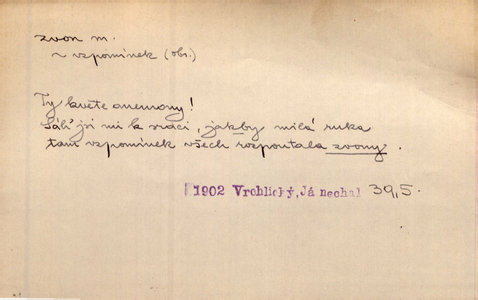 zvon m.
~ vzpomínek (obr.)
Ty květe anemony!
jsi mi k srdci, jakby milá ruka
tam vzpomínek všech rozpoutala zvony.
1902 Vrchlický, Já nechal 39,5.